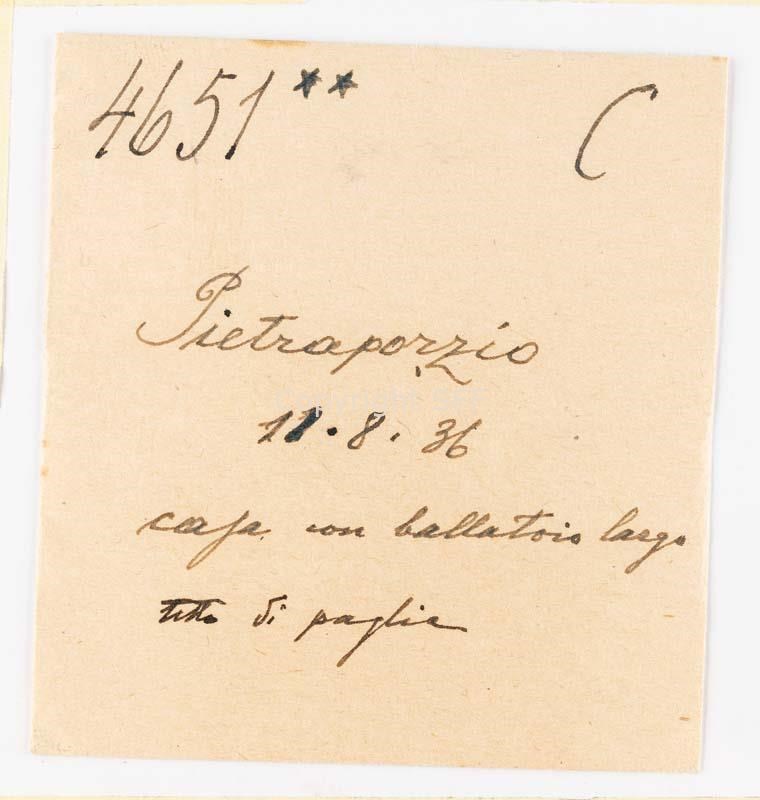 4651 ** C
Pietraporzio
11.8.36
casa con ballatoio largo
tetto di paglia